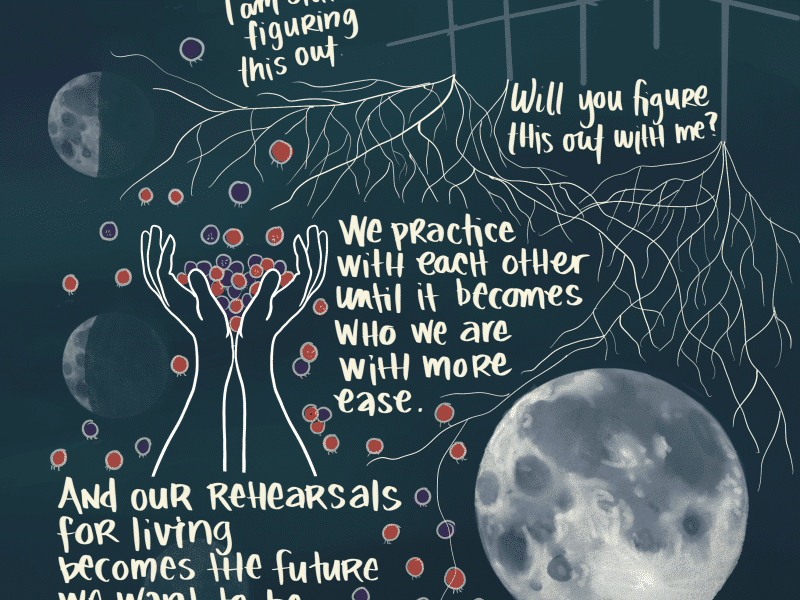 I am still
figuring
this out.
Will you figure
this out with me?
We practice
with each other
until it becomes
who we are
with more
ease.
And our rehearsals
for living
becomes the future
we want to be